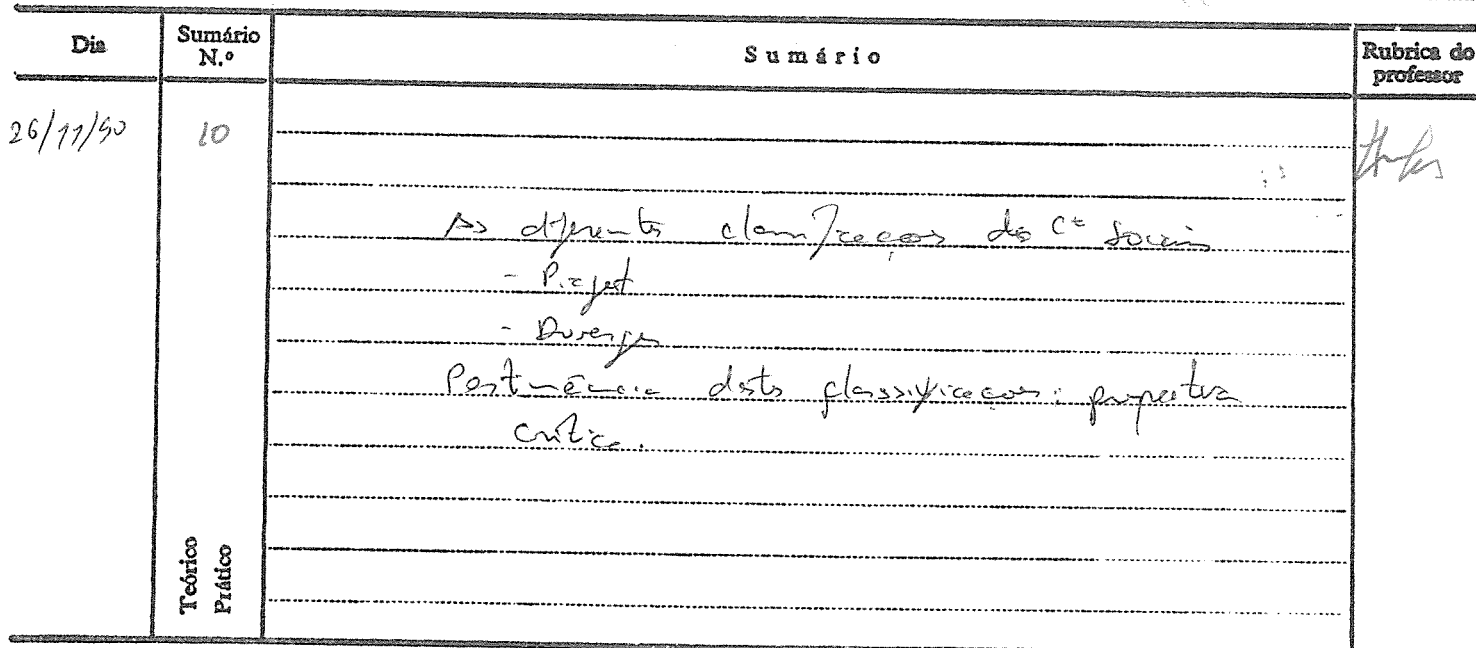 Dia
Sumário N.º
Sumário
Rubrica do professor
26/11/90
10
As diferentes classificações das Cª Sociais
- Piaget
- Duverger
Pertinência destas classificações: perspectiva
crítica.
Teórico
Prático